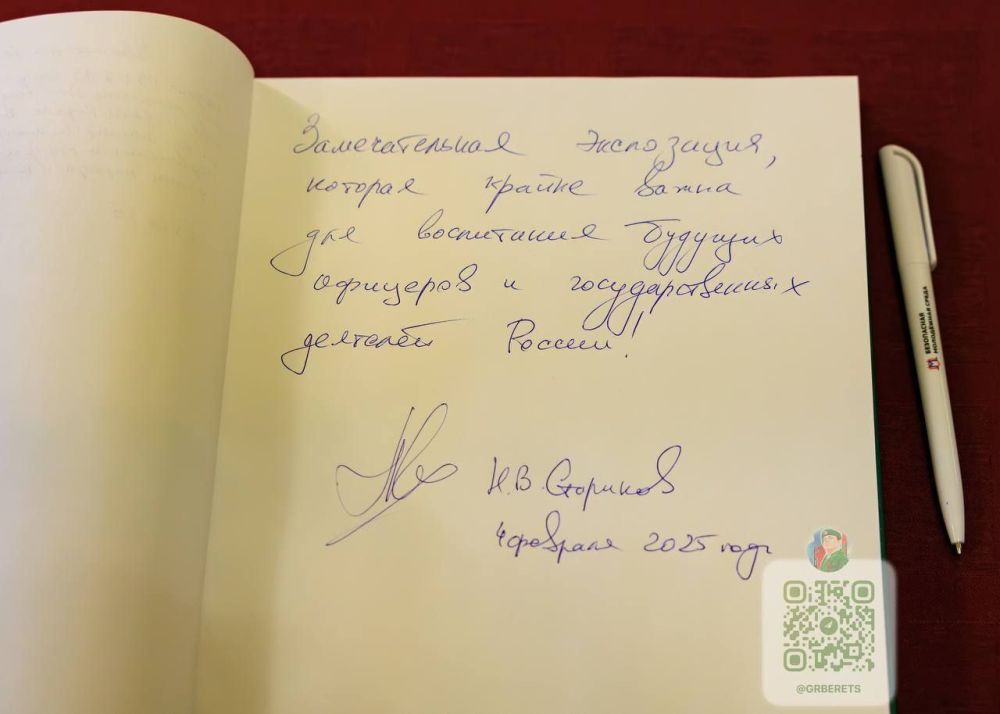 Замечательная экспозиция,
которая крайне важна
для воспитания будущих
офицеров и государственных
деятелей России!
Н.В. Стариков
4 февраля 2025 года
БЕЗОПАСНАЯ
МОЛОДЁЖНАЯ СРЕДА
@GRBERETS